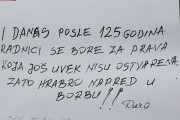 I DANAS POSLE 125 GODINA
RADNICI SE BORE ZA PRAVA
KOJA JOŠ UVEK NISU OSTVARENA
ZATO HRABRO NAPRED U
BORBU!!!
Đuro